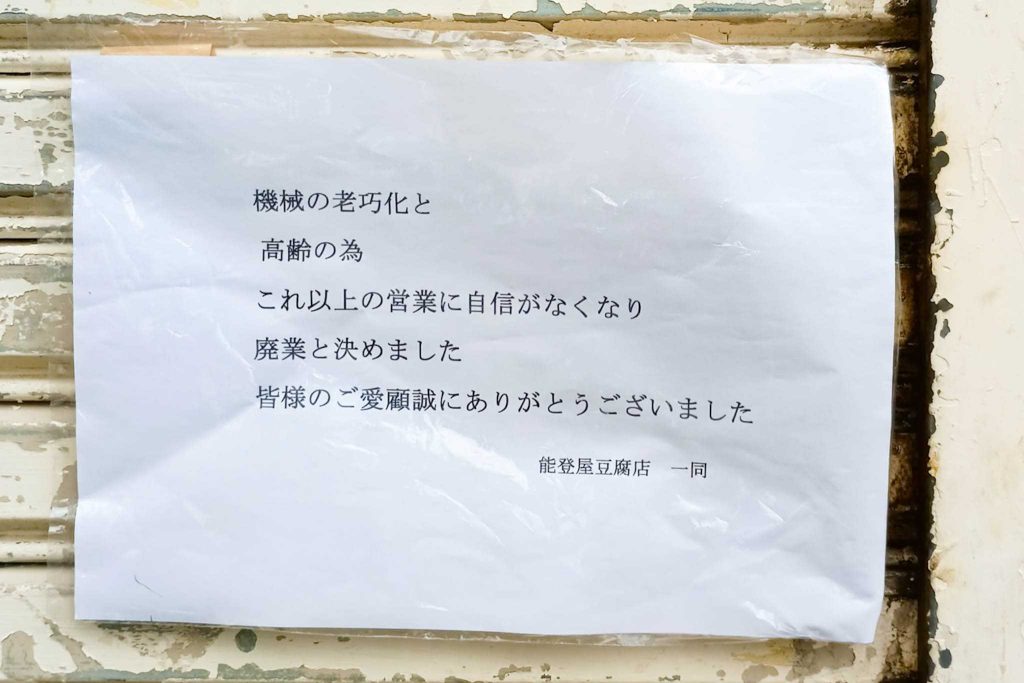 機械の老巧化と
高齢の為
これ以上の営業に自信がなくなり
廃業と決めました
皆様のご愛顧誠にありがとうございました
能登屋豆腐店　一同